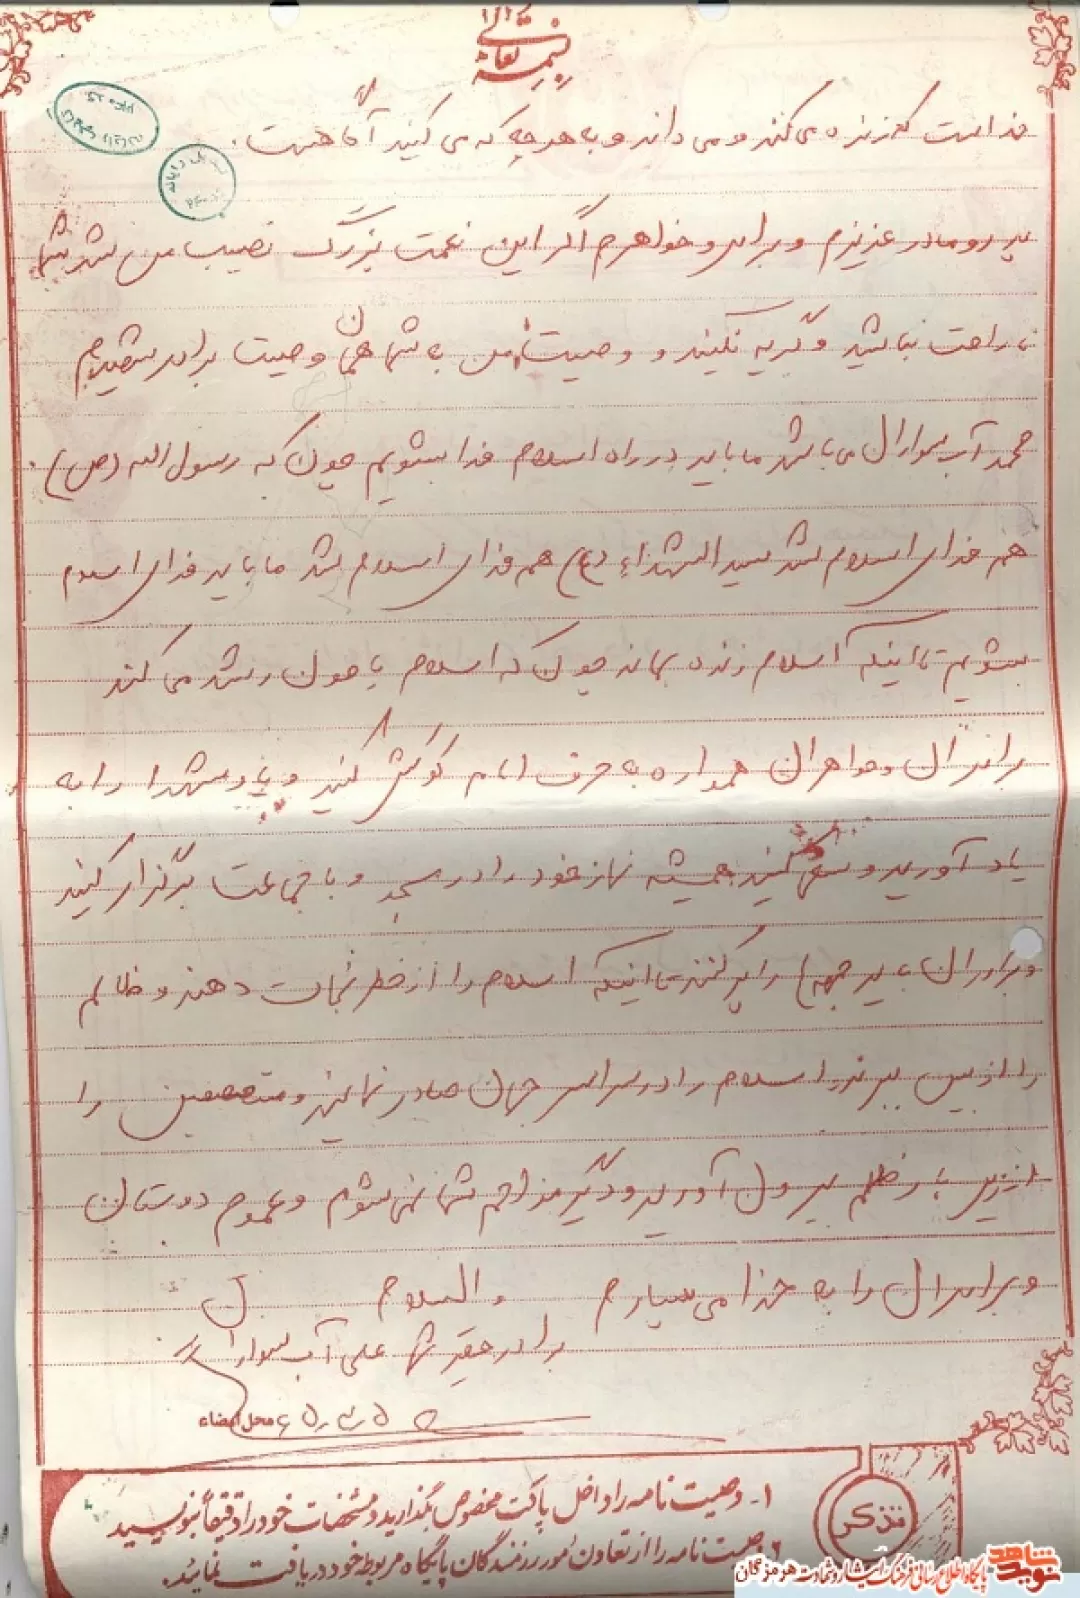 بسمه تعالی
خداست که زنده می کند و می داند و به هر چه که می کنید آگاه هست.
پدر و مادر عزیزم و برادر و خواهرم اگر این نعمت بزرگ نصیب من شد شما
ناراحت نباشید و گریه نکنید و وصیت من به شما همان وصیت برادر شهیدم
محمد آب سواران می باشد ما باید در راه اسلام فدا بشویم چون که رسول الله (ص)
هم فدای اسلام شد سید الشهداء (ع) هم فدای اسلام شد ما باید فدای اسلام
بشویم تا اینکه اسلام زنده بماند چون که اسلام با خون رشد می کند
برادران و خواهران همواره به حرف امام گوش کنید و یاد شهدا را به
یاد آورید و سعی کنید همیشه نماز خود را در مسجد و با جماعت برگزار کنید
و برادران باید جبهه را پر کنند تا اینکه اسلام را از خطر نجات دهند و ظالم
را از بین ببرند اسلام را در سراسر جهان صادر نمائید و مستضعفین را
از زیر بار ظلم بیرون آورید و دیگر مزاحم شما نمی شوم و عموم دوستان
و برادران را به خدا می سپارم والسلام
برادر حقیر شما علی آب سواران
محل امضاء
تذکر
۱- وصیت نامه را داخل پاکت مخصوص بگذارید و مشخصات خود را دقیقاً بنویسید
۲- وصیت نامه را از تعاون امور رزمندگان پایگاه مربوط خود دریافت نمائید.
نوید شاهد
پایگاه اطلاع رسانی فرهنگ ایثار و شهادت هرمزگان